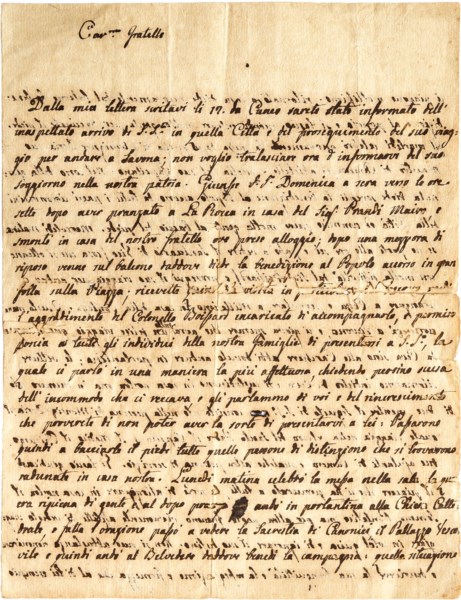 Car.mo Fratello
Dalla mia lettera scritavi li 17. da Cuneo sarete stato informato dell'
inaspettato arrivo di S. S.tà in quella Città, e del proseguimento del suo viag-
gio per andare a Savona; non voglio tralasciar ora d'informarvi del suo
soggiorno nella nostra patria. Giunse S. S.tà Domenica a sera verso le ore
sette dopo aver pranzato a La Rocca in casa del Sig.r Brandi Maire, e
smontò in casa del nostro fratello ove prese alloggio; dopo una mezz'ora di
riposo venne sul balcone daddove diede la benedizione al Popolo accorso in gran
folla sulla Piazza; ricevette la visita in
l'aggradimento del Colonello Boisard incaricato d'accompagnarlo, è permiso
poscia a tutti gli individui della nostra famiglia di presentarsi a S. S.tà, la
quale ci parlò in una maniera la più affettuosa, chiedendo persino scusa
dell'incommodo che ci recava, e gli parlammo di voi e del rincrescimento
che provereste di non poter aver la sorte di presentarvi a lei. Passarono
quindi a bacciarle il piede tutte quelle persone di distinzione che si trovarono
radunate in casa nostra. Lunedì matina celebrò la messa nella sala la quale
era ripiena di gente, al dopo pranzo andò in portantina alla Chiesa Catte-
drale, e fatta orazione passò a vedere la Sacrestia il Pallazzo Vesco-
vile e quindi andò al Belvedere daddove benedì la campagna: questa situazione